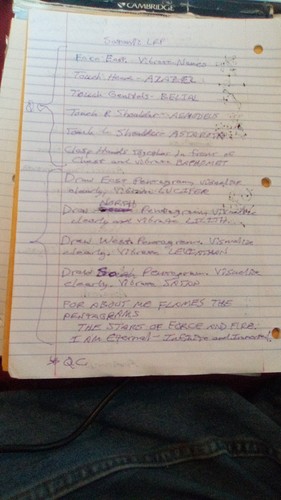 CAMBRIDGE
LRP
Face East - Vibrate Names
Touch Head - AZAZEL
Touch Genitals - BELIAL
Touch R Shoulder - ASMODEUS
Touch L Shoulder ASTAROTH
Clasp Hands together in front of
Chest and Vibrate BAPHOMET
Draw East Pentagram, Visualize
clearly, Vibrate LUCIFER
NORTH
Draw Pentagram, Visualize
clearly and vibrate LILITH
Draw West Pentagram, Visualize
clearly, Vibrate LEVIATHAN
Draw South Pentagram. Visualize
clearly, Vibrate SATAN
FOR ABOUT ME FLAMES THE
PENTAGRAMS
THE STARS OF FORCE AND FIRE.
I AM Eternal - Infinite and Immortal
* Q.C.